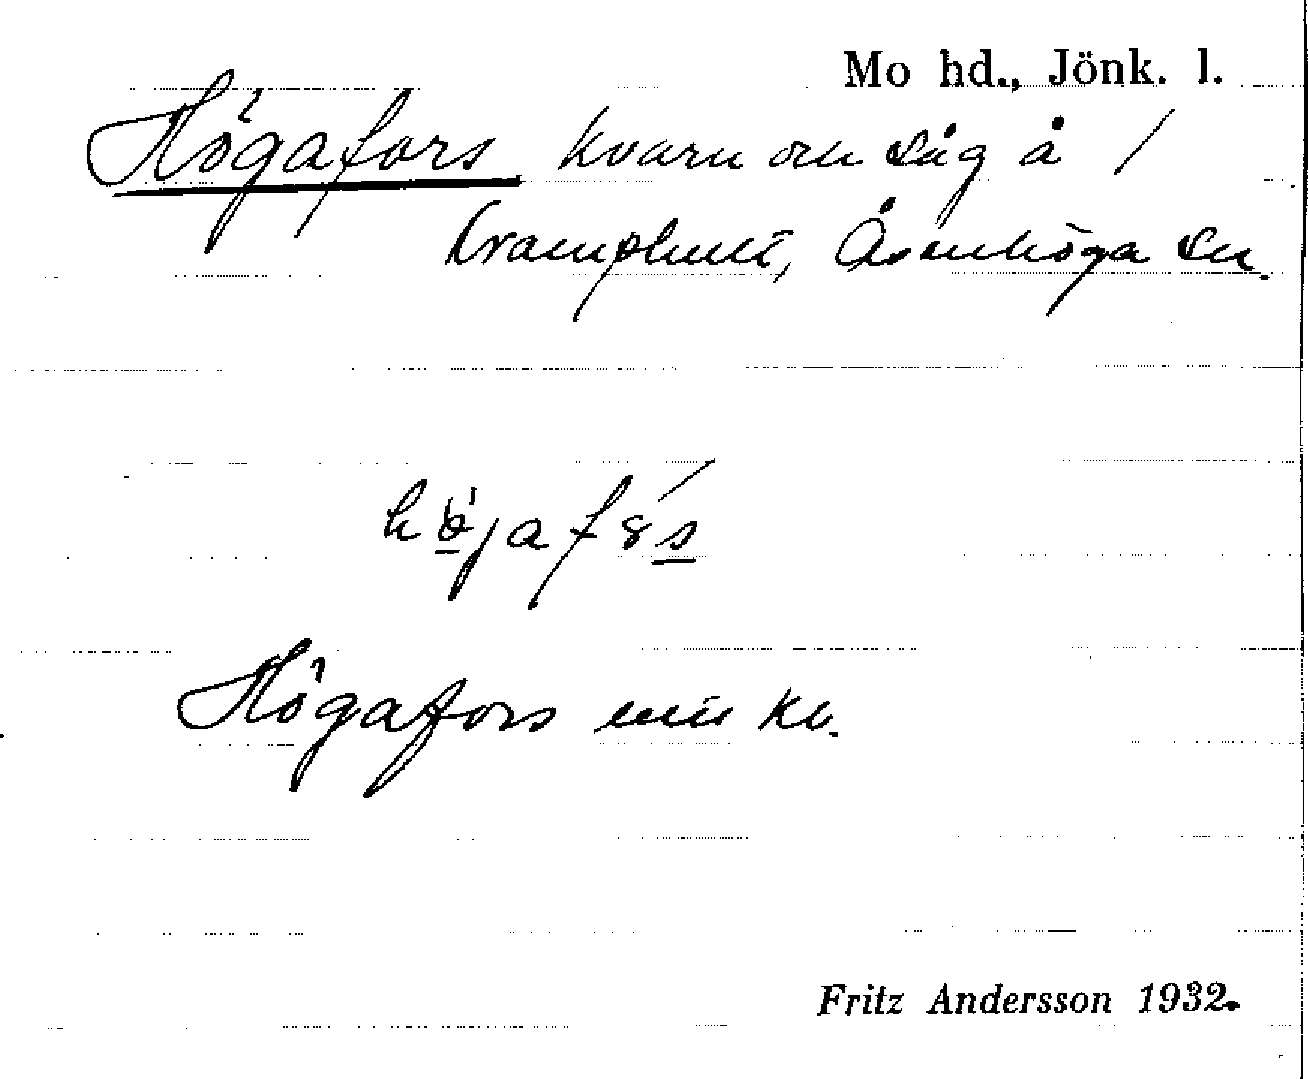 Mo hd., Jönk. l.
Högafors kvarn och såg å /
Kramphult, Åsenhöga sn.
höjafs
Högafors kv.
Fritz Andersson 1932.